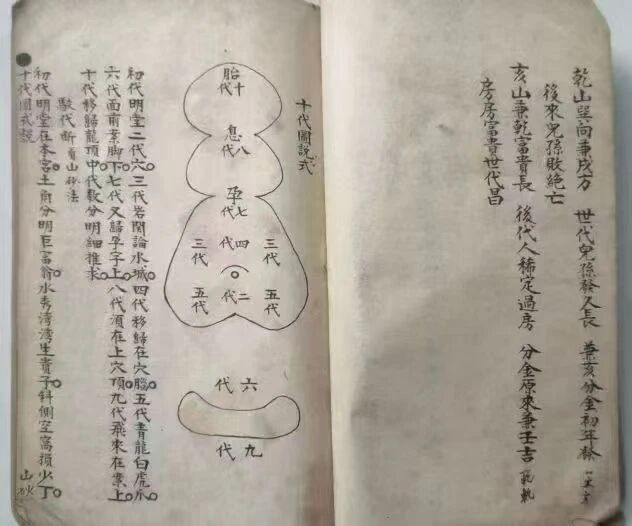 乾山巽向兼戌方　世代兒孫發人長　兼亥分金初年發
後來兒孫敗絕亡
亥山兼乾富貴長　後代人稀定過房　分金原來兼壬吉
房房富貴世代昌
十代圖説式
胎十代
息八代
孕七代
四代
三代
三代
二代
五代
五代
六代
九代
初代明堂二代穴　三代岩閑論水城　四代移歸在穴腦　五代青龍白虎爪
六代面前案脚下　七代又歸孕子上　八代須在上穴頂　九代飛來在案上
十代移歸龍頂中　代数分明細推求
斷山砂法
初代明堂在本宮　土角分明巨富翁　水秀湾湾生貴子　斜側空窩損少丁
山砂
十代圖式説